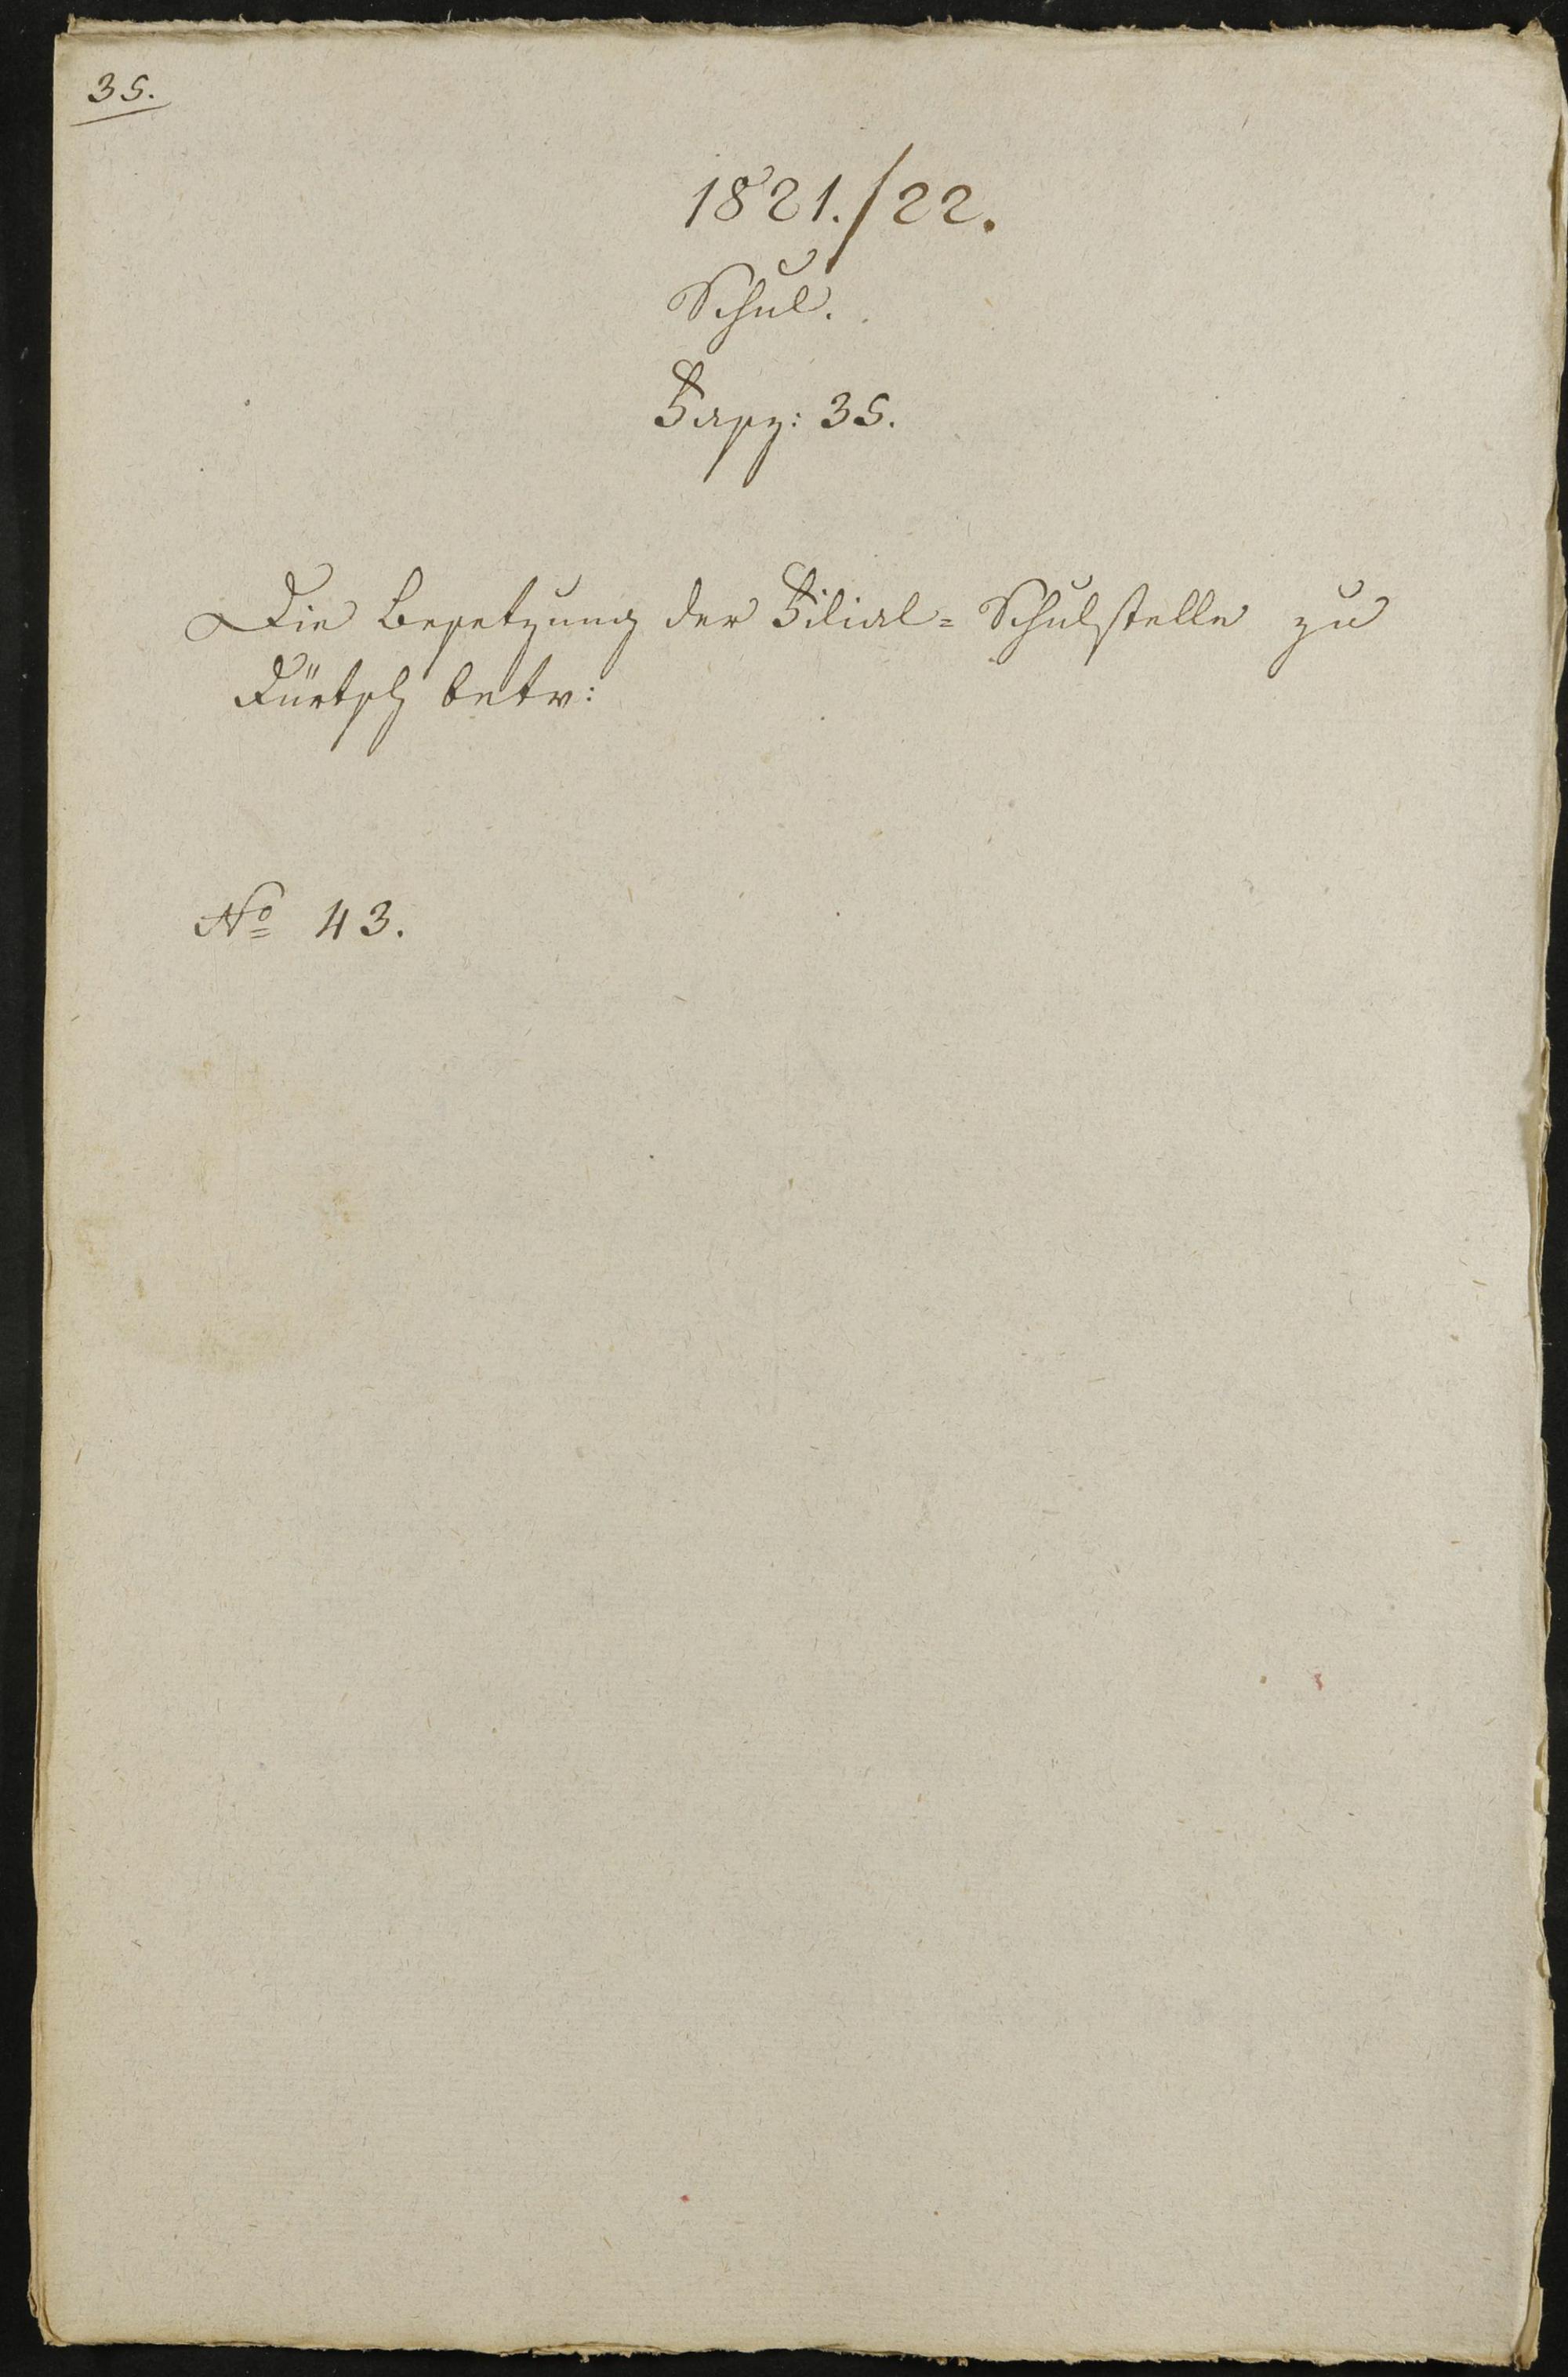 35.
1821./22.
Schul.
Fasz: 35.
Die Besetzung der Filial= Schulstelle zu
betr:
No 43.